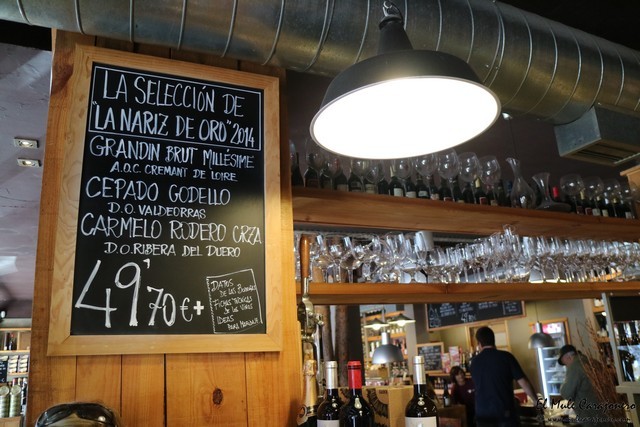 LA SELECCIÓN DE
"LA NARIZ DE ORO" 2014
GRANDIN BRUT MILLÉSIME
A.O.C. CREMANT DE LOIRE
CEPADO GODELLO
D.O. VALDEORRAS
CARMELO RODERO CRZA
D.O. RIBERA DEL DUERO
49'70€+
DATOS
DE LAS BODEGAS
FICHAS TÉCNICAS
DE LOS VINOS
IDEAS
PARA